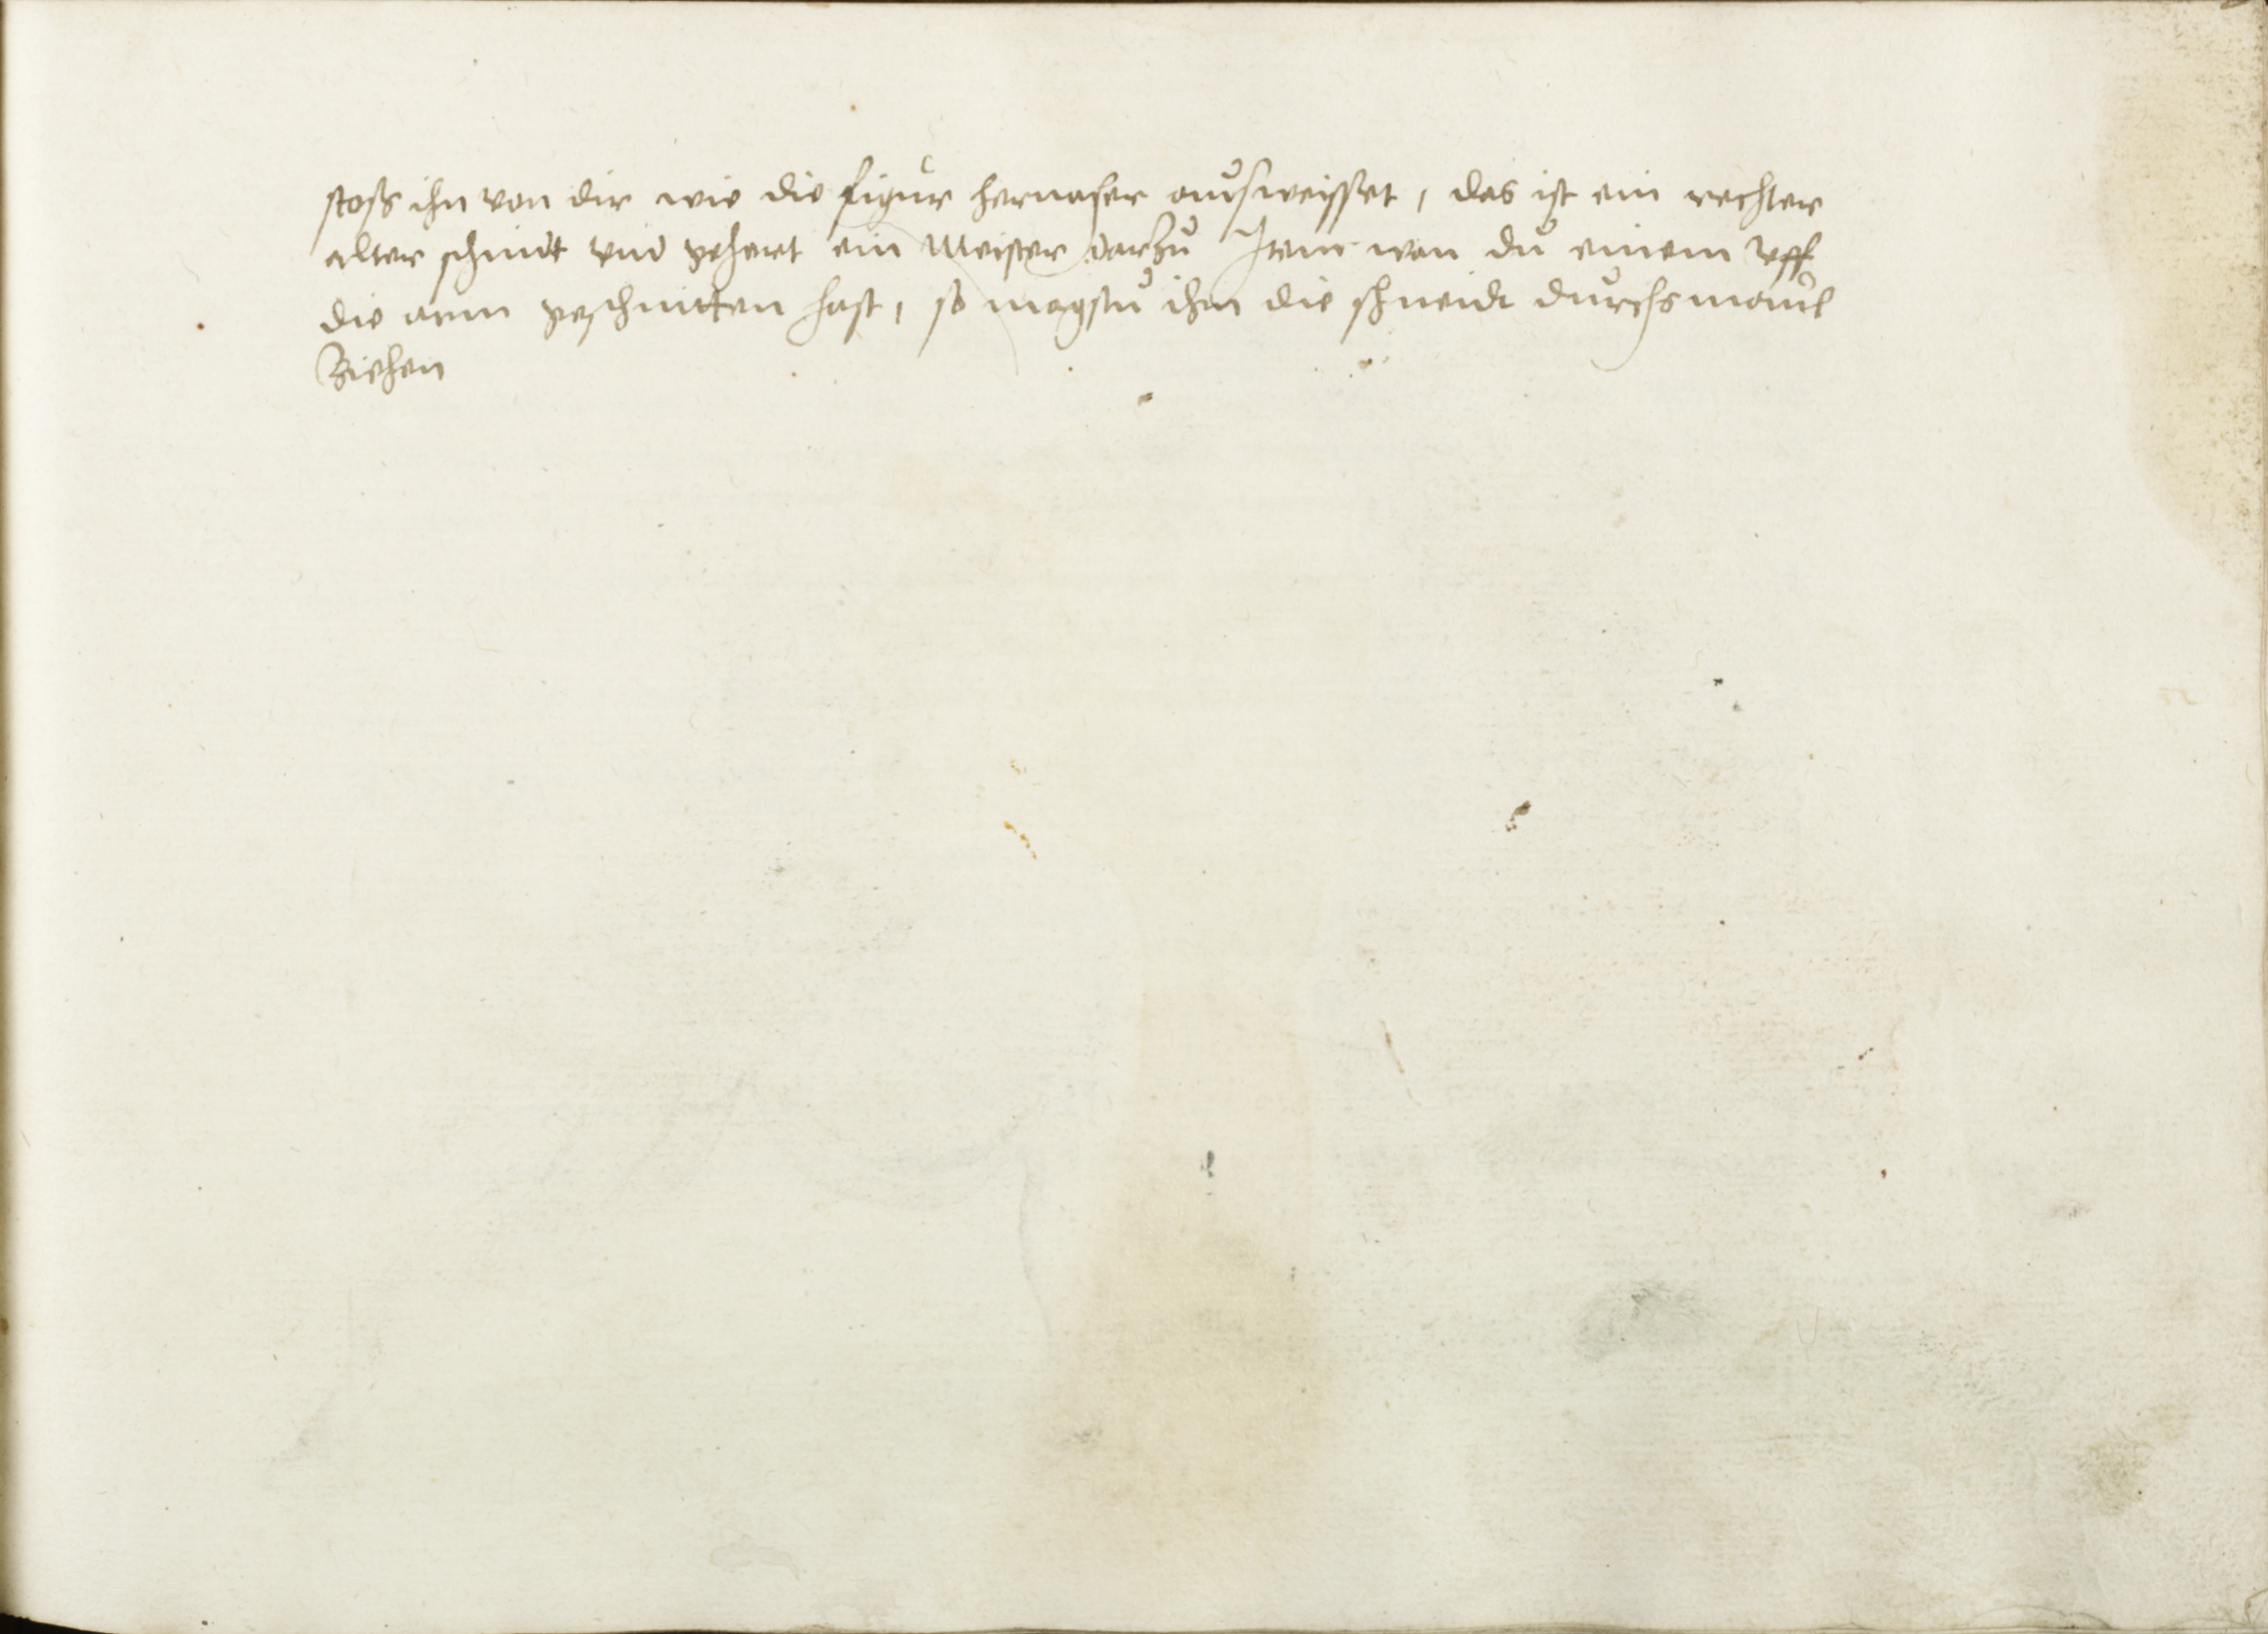 stoss ihn von dir wie die figur hernaher ausweisset, das ist ein rechter
alter schnidt vnd gehert ein Meister darzu Item wan du einem vff
die arm geschnitten hast, so magstu ihm die schneidt durchs maul
Ziehen